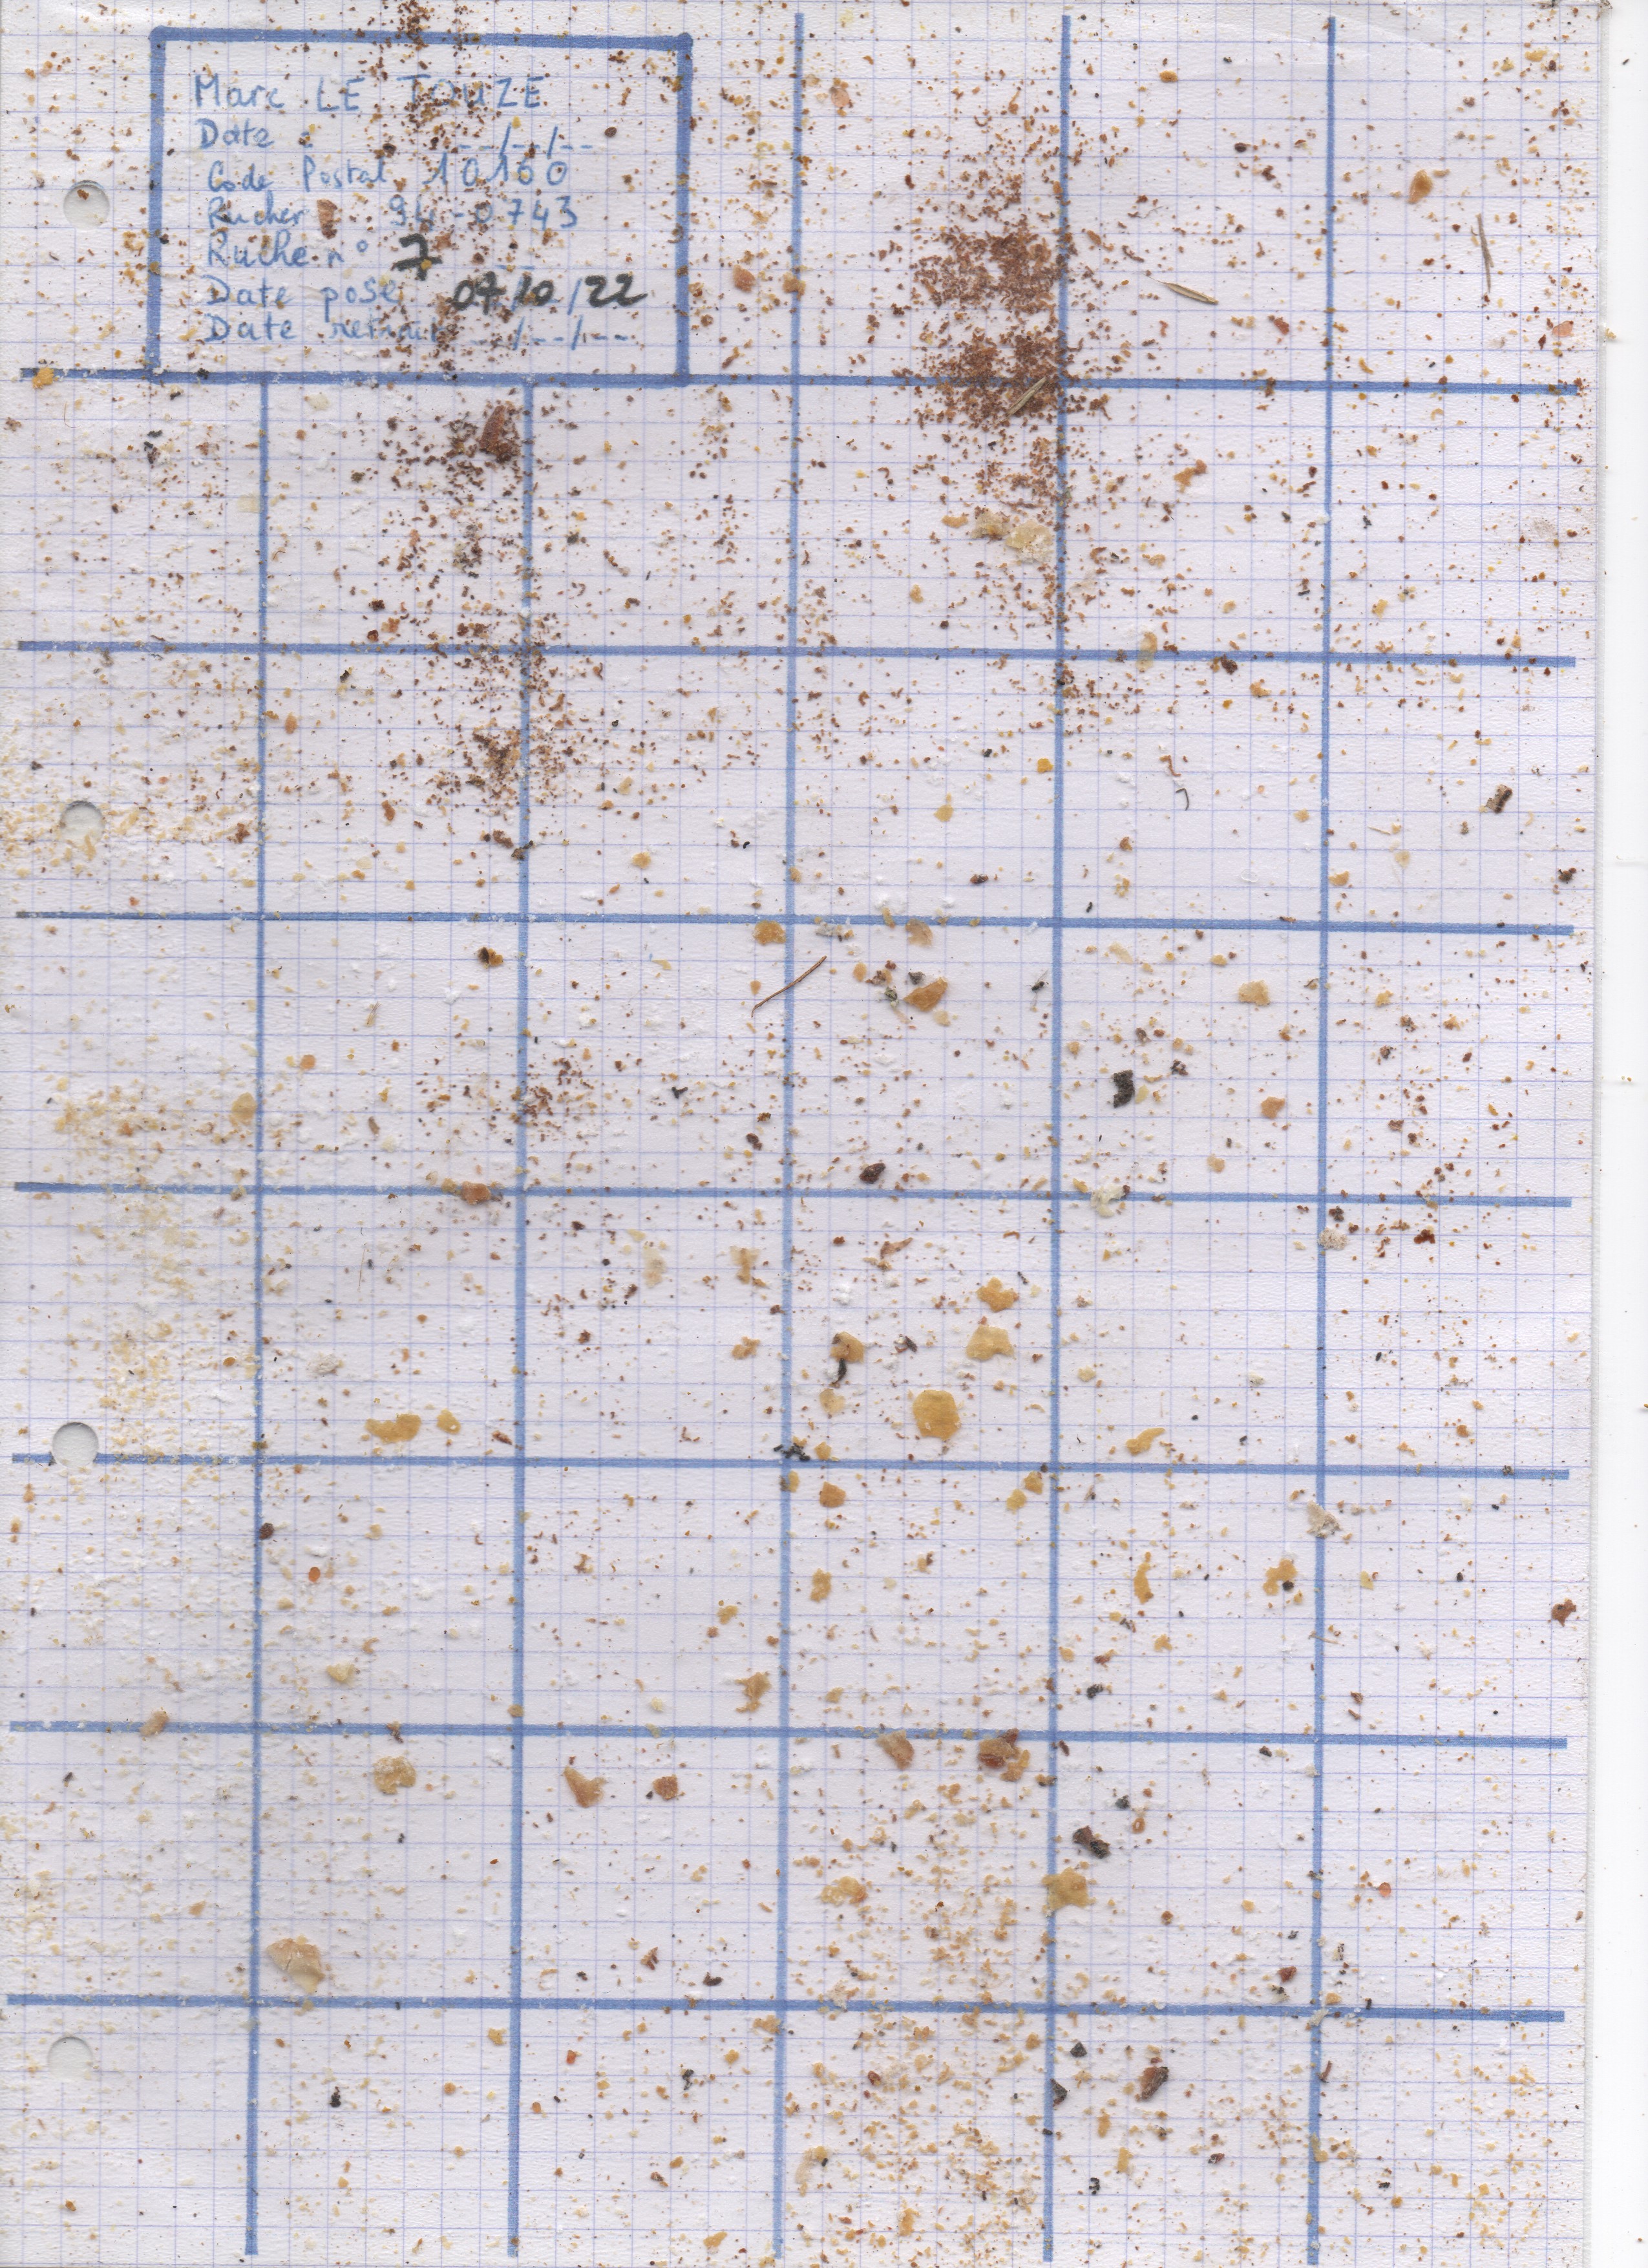 Marc LE TOUZE
Date : __/__/__
Code Postal 10160
Rucher : 94-0743
Ruche n° 7
Date pose 07/10/22
Date retrait __/__/__